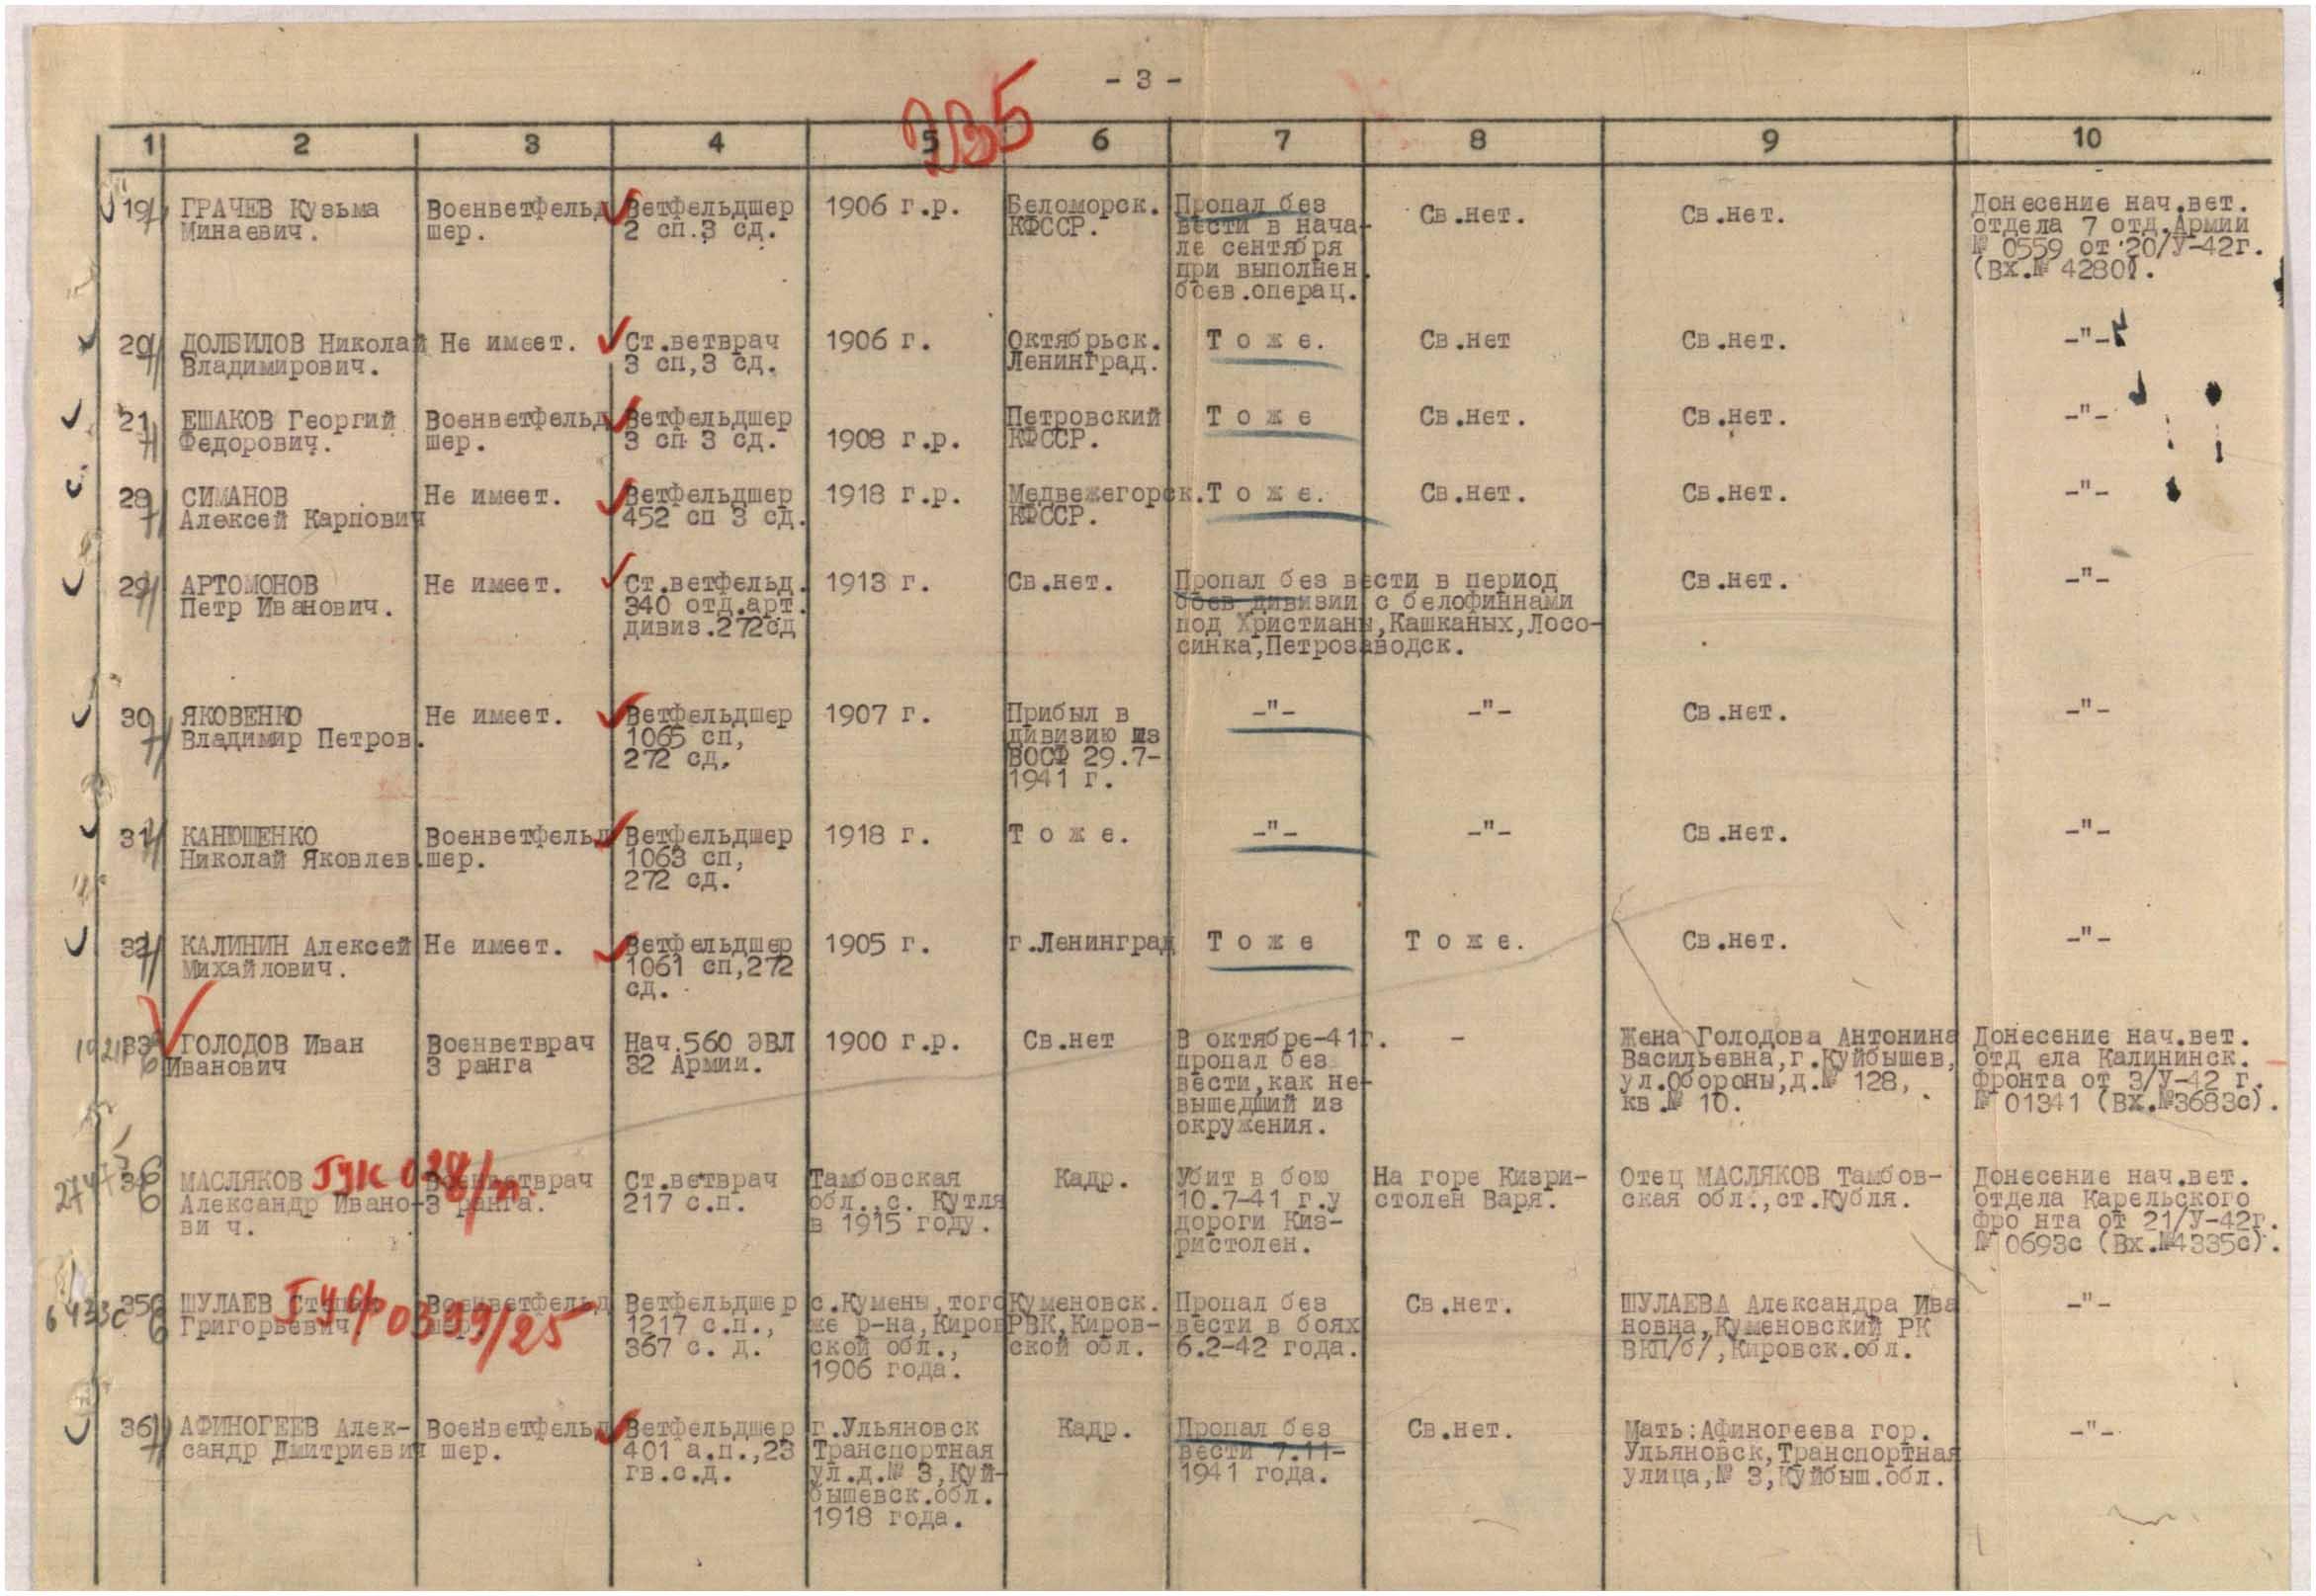 - 3 -
235
1 2 3 4 5 6 7 8 9 10
19 ГРАЧЕВ Кузьма
Минаевич.
Военветфельд
шер.
Ветфельдшер
2 сп.3 сд.
1906 г.р.
Беломорск.
КФССР.
Пропал без
вести в нача-
ле сентября
при выполнен.
боев.операц.
Св.нет.
Св.нет.
Донесение нач.вет.
отдела 7 отд.Армии
№ 0559 от 20/У-42г.
(Вх.№ 4280).
20 ДОЛБИЛОВ Николай
Владимирович.
Не имеет.
Ст.ветврач
3 сп,3 сд.
1906 г.
Октябрьск.
Ленинград.
Т о ж е.
Св.нет
Св.нет.
-"-
21 ЕШАКОВ Георгий
Федорович.
Военветфельд
шер.
Ветфельдшер
3 сп 3 сд.
1908 г.р.
Петровский
КФССР.
Т о ж е
Св.нет.
Св.нет.
-"-
28 СИМАНОВ
Алексей Карпович
Не имеет.
Ветфельдшер
452 сп 3 сд.
1918 г.р.
Медвежегорск.
КФССР.
Т о ж е.
Св.нет.
Св.нет.
-"-
29 АРТОМОНОВ
Петр Иванович.
Не имеет.
Ст.ветфельд.
340 отд.арт.
дивиз.272сд
1913 г.
Св.нет.
Пропал без вести в период
боев дивизии с белофиннами
под Христианы,Кашканых,Лосо-
синка,Петрозаводск.
Св.нет.
-"-
30 ЯКОВЕНКО
Владимир Петров.
Не имеет.
Ветфельдшер
1065 сп,
272 сд.
1907 г.
Прибыл в
дивизию из
ВОСФ 29.7-
1941 г.
-"-
-"-
Св.нет.
-"-
31 КАНЮШЕНКО
Николай Яковлев.
Военветфельд
шер.
Ветфельдшер
1063 сп,
272 сд.
1918 г.
Т о ж е.
-"-
-"-
Св.нет.
-"-
32 КАЛИНИН Алексей
Михайлович.
Не имеет.
Ветфельдшер
1061 сп,272
сд.
1905 г.
г.Ленинград
Т о ж е
Т о ж е.
Св.нет.
-"-
33 ГОЛОДОВ Иван
Иванович
Военветврач
3 ранга
Нач.560 ЭВЛ
32 Армии.
1900 г.р.
Св.нет
В октябре-41г.
пропал без
вести,как не-
вышедший из
окружения.
-
Жена Голодова Антонина
Васильевна,г.Куйбышев,
ул.Обороны,д.№ 128,
кв.№ 10.
Донесение нач.вет.
отд ела Калининск.
фронта от 3/У-42 г.
№ 01341 (Вх.№3683с).
34 МАСЛЯКОВ
Александр Ивано-
ви ч.
ГУК
Военветврач
3 ранга.
Ст.ветврач
217 с.п.
Тамбовская
обл.,с. Кутля
в 1915 году.
Кадр.
Убит в бою
10.7-41 г.у
дороги Киз-
ристолен.
На горе Кизри-
столен Варя.
Отец МАСЛЯКОВ Тамбов-
ская обл.,ст.Кубля.
Донесение нач.вет.
отдела Карельского
фро нта от 21/У-42г.
№ 0693с (Вх.№4335с).
35 ШУЛАЕВ Степан
Григорьевич.
ГУФ 0339/25
Военветфельд
шер.
Ветфельдшер
1217 с.п.,
367 с. д.
с.Кумены,того
же р-на,Киров
ской обл.,
1906 года.
Куменовск.
РВК,Киров-
ской обл.
Пропал без
вести в боях
6.2-42 года.
Св.нет.
ШУЛАЕВА Александра Ива
новна,Куменовский РК
ВКП/б/,Кировск.обл.
-"-
36 АФИНОГЕЕВ Алек-
сандр Дмитриевич
Военветфельд
шер.
Ветфельдшер
401 а.п.,23
гв.с.д.
г.Ульяновск
Транспортная
ул.д.№ 3,Куй-
бышевск.обл.
1918 года.
Кадр.
Пропал без
вести 7.11-
1941 года.
Св.нет.
Мать:Афиногеева гор.
Ульяновск,Транспортная
улица,№ 3,Куйбыш.обл.
-"-